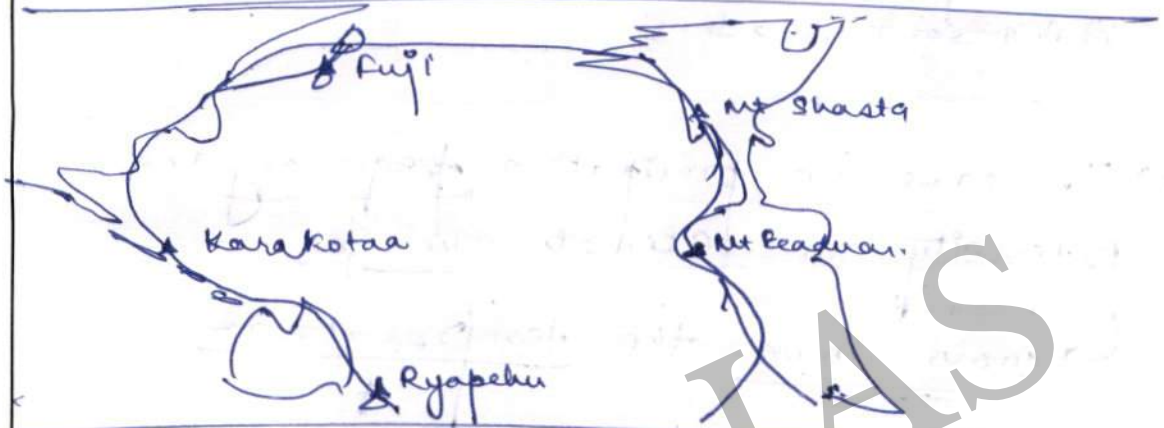 Fuji
Mt Shasta
Karakotaa
Mt
Ryapehu
IAS